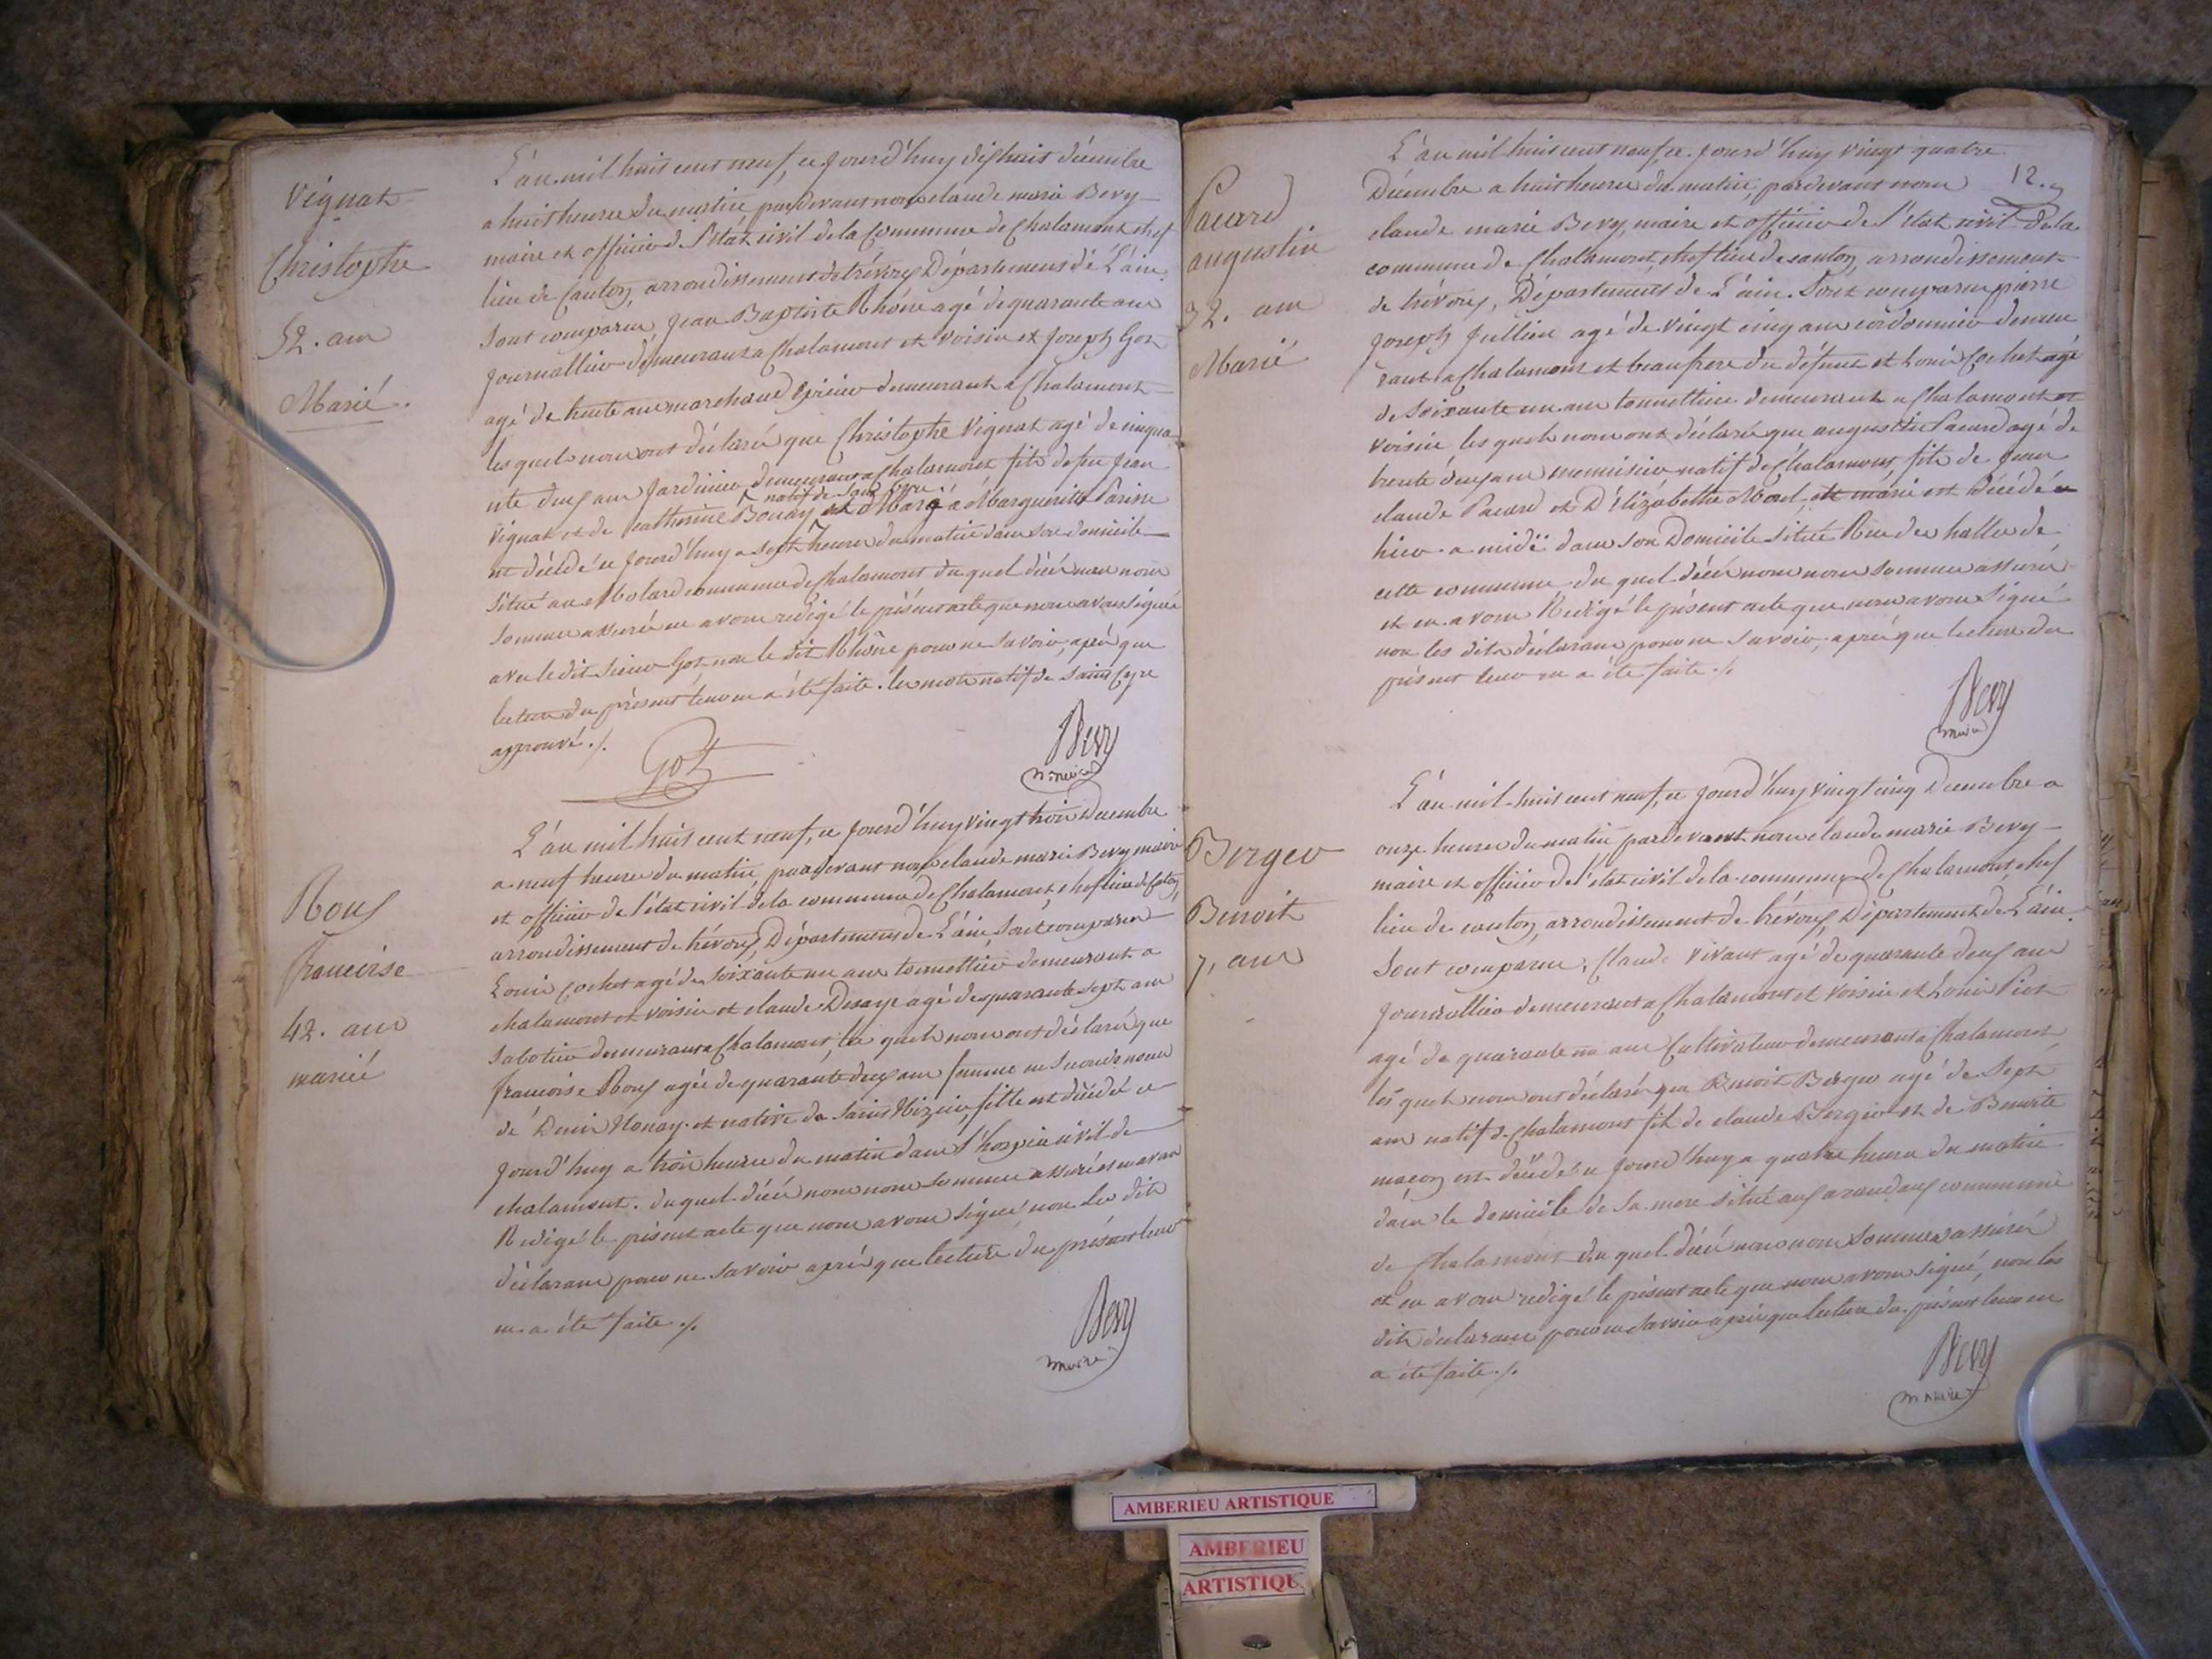 Vignat
Christophe
52. ans
Marié.
L'an mil huit cent neuf, ce jourd'huy dixhuit décembre
a huit heures du matin, pardevant nous claude marie Bevy
maire et officier de l'état civil de la Commune de Chalamont chef
lieu de Canton, arrondissement de trévoux Département de L'ain.
Sont comparus, Jean Baptiste Rhône agé de quarante ans
Journallier demeurant a Chalamont et voisin et Joseph Got
agé de trente ans marchand Epicier demeurant a Chalamont
les quels nous ont déclaré que Christophe Vignat agé de cinqua
nte deux ans Jardinier demeurant a Chalamont fils de feu Jean
natif de Saint Cyre
Vignat et de catherine Bouay et Marié a Marguerite Parisse
est décédé ce jourd'huy a sept heures du matin dans son domicile
situé au commune de Chalamont du quel décés nous nous
sommes assurés en avons redigé le présent acte que nous avons signé
avec le dit sieur Got non le dit Rhône pour ne savoir, après que
lecture du présent leur en a été faite. les mots natif de Saint Cyre
approuvé ./.
Got
Bevy
maire
Roux
francoise
42. ans
mariée
L'an mil huit cent neuf, ce jourd'huy vingt trois Decembre
a neuf heures du matin pardevant nous claude marie Bevy maire
et officier de l'état civil de la commune de Chalamont, cheflieu de Caton,
arrondissement de trévoux, Département de L'ain, Sont comparus
Louis Cochet agé de soixante un ans tonnellier demeurant a
chalamont et voisin et claude Desaye agé de quarante sept ans
Sabotier demeurant a Chalamont, les quels nous ont déclaré que
francoise Roux agée de quarante deux ans femme en noces
de Denis Monay et native de Saint Nizier, fille est décédé ce
jourd'huy a trois heures du matin dans l'hospice civil de
chalamont. du quel décés nous nous sommes assurés et en avons
Redigé le présent acte que nous avons signé non les dits
déclarans pour ne savoir après que lecture du présent leur
en a été faite ./.
Bevy
maire
12.
Pacard
augustin
32. ans
Marié
L'an mil huit cent neuf, ce jourd'huy vingt quatre
Décembre a huit heures du matin, pardevant nous
claude marie Bevy, maire et officier de l'état civil de la
commune de Chalamont, cheflieu de canton, arrondissement
de trévoux, Département de L'ain. Sont comparus pierre
Joseph Jullien agé de vingt cinq ans cordonnier demeu
rant a Chalamont et beaufrere du défunt et Louis Cochet agé
de soixante un ans tonnellier demeurant a Chalamont et
voisin, les quels nous ont déclaré que augustin Pacard agé de
trente deux ans menuisier natif de Chalamont, fils de Jean
claude Pacard et D'élizabethe Morel, et marié est décédé
hier a midi dans son Domicile situé Rue des halles de
cette commune du quel décés nous nous sommes assurés
et en avons Redigé le présent acte que nous avons signé
non les dits déclarans pour ne savoir, après que lecture du
présent leur en a été faite ./.
Bevy
maire
Berger
Benoit
7, ans
L'an mil huit cent neuf, ce jourd'huy vingt cinq Decembre a
onze heures du matin pardevant nous claude marie Bevy
maire et officier de l'état civil de la commune de Chalamont, chef
lieu de canton, arrondissement de trévoux, Département de L'ain.
Sont comparus, Claude Vivant agé de quarante deux ans
Journallier demeurant a Chalamont et voisin et Louis Piot
agé de quarante un ans Cultivateur demeurant a Chalamont,
les quels nous ont déclaré que Benoit Berger agé de Sept
ans natif de Chalamont fils de claude Berger et de Benoite
maçon est décédé ce jourd'huy a quatre heures du matin
dans le domicile de sa mere situé aux commune
de Chalamont du quel décés nous nous sommes assurés
et en avons redigé le présent acte que nous avons signé, non les
dits declarans pour ne savoir après que lecture du présent leur en
a été faite ./.
Bevy
maire
AMBERIEU ARTISTIQUE
AMBERIEU
ARTISTIQUE